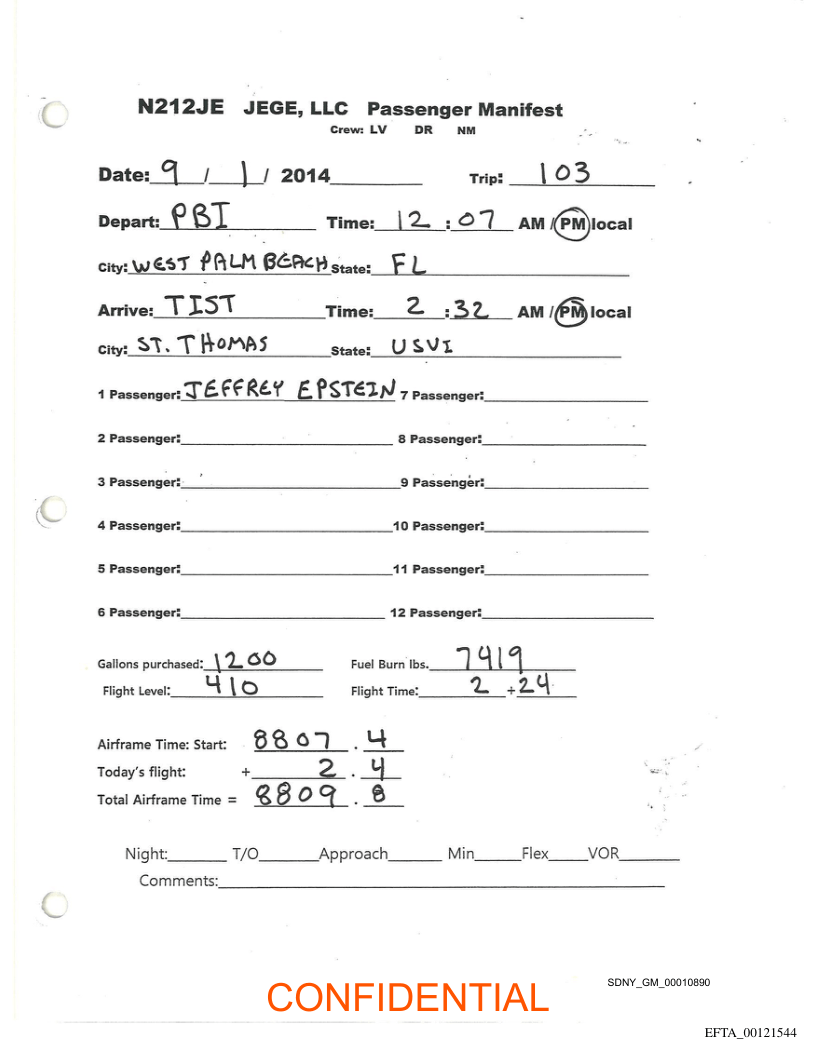 N212JE JEGE, LLC Passenger Manifest
Crew: LV DR NM
Date: 9 / 1 / 2014 Trip: 103
Depart: PBI Time: 12 : 07 AM / PM local
City: WEST PALM BEACH State: FL
Arrive: TIST Time: 2 : 32 AM / PM local
City: ST. THOMAS State: USVI
1 Passenger: JEFFREY EPSTEIN 7 Passenger:
2 Passenger: 8 Passenger:
3 Passenger: 9 Passenger:
4 Passenger: 10 Passenger:
5 Passenger: 11 Passenger:
6 Passenger: 12 Passenger:
Gallons purchased: 1200 Fuel Burn lbs. 7419
Flight Level: 410 Flight Time: 2 + 24
Airframe Time: Start: 8807 . 4
Today's flight: + 2 . 4
Total Airframe Time = 8809 . 8
Night: T/O Approach Min Flex VOR
Comments:
SDNY_GM_00010890
CONFIDENTIAL
EFTA_00121544